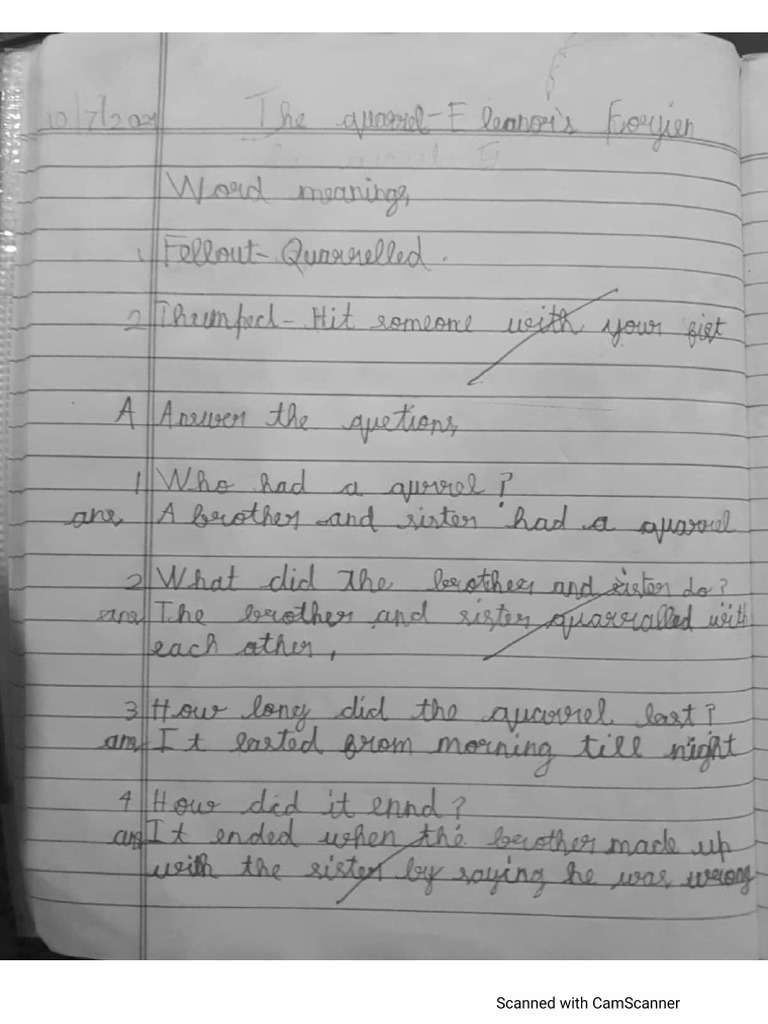 10/7/2021 The quarrel - Eleanor's Forjien
Word meanings,
1 Fellout - Quarrelled.
2 Thumped - Hit someone with your fist
A Answer the quetions,
1 Who had a qurrel?
ans, A brother and sister had a quarrel
2 What did the brother and sister do?
ans The brother and sister quarralled with
each ather,
3 How long did the quarrel last?
ans It lasted from morning till night
4 How did it ennd?
ans It ended when the brother made up
with the sister by saying he was wrong
Scanned with CamScanner